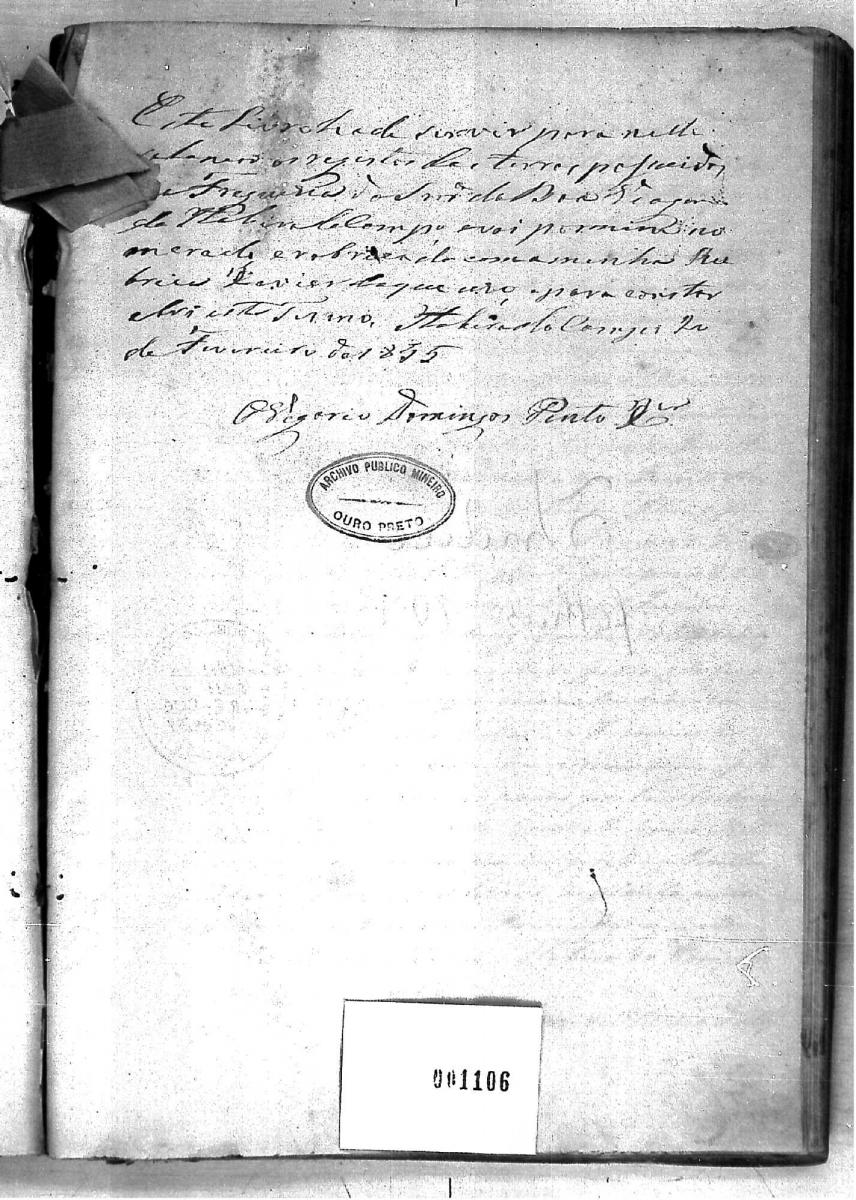 Este Livro ha de servir para nelle
se lançar os registos das terras possuidas
na Freguezia da Snrª da Boa Viagem
da Itabira do Campo e vai por mim nu
merado e rubricado com a minha Ru
brica Xavier de que uso, e para constar
abri este Termo. Itabira do Campo 20
de Fevereiro de 1855
O Vigario Domingos Pinto
ARCHIVO PUBLICO MINEIRO
OURO PRETO
001106